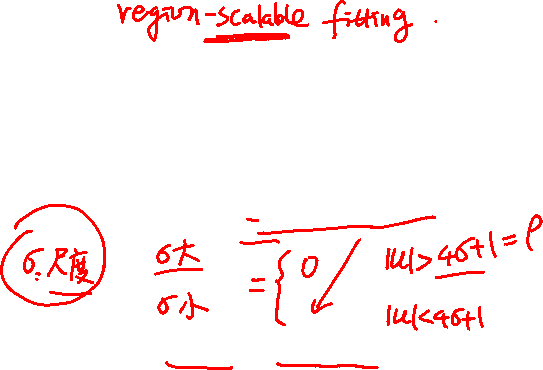 region-scalable fitting.
σ: 尺度
σ大
σ小
= { 0 |u|>4σ+1=ρ
|u|<4σ+1